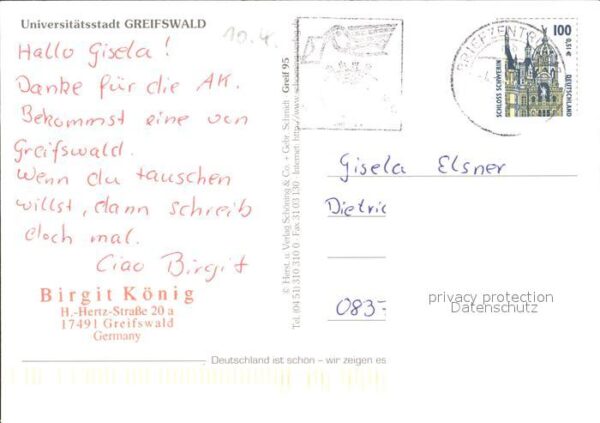 Universitätsstadt GREIFSWALD
10.4.
Hallo Gisela!
Danke für die AK.
Bekommst eine von
Greifswald.
Wenn du tauschen
willst, dann schreib
doch mal.
Ciao Birgit
Birgit König
H.-Hertz-Straße 20 a
17491 Greifswald
Germany
© Herst. u. Verlag Schöning & Co. + Gebr. Schmidt
Greif 95
Tel. (04 51) 310 310 0 · Fax 31 03 130 · Internet: http://www.schoening-verlag.de
BRIEFZENTRUM
100
0,51€
SCHLOSS SCHWERIN
DEUTSCHLAND
Gisela Elsner
Dietric
083-
privacy protection
Datenschutz
Deutschland ist schön – wir zeigen es